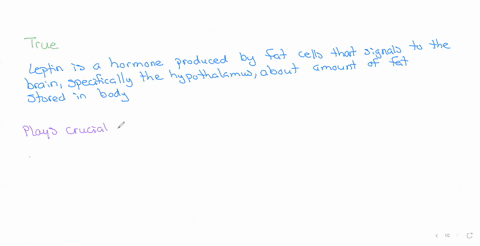 True
Leptin is a hormone produced by fat cells that signals to the
brain, specifically the hypothalamus, about amount of fat
stored in body
Plays crucial